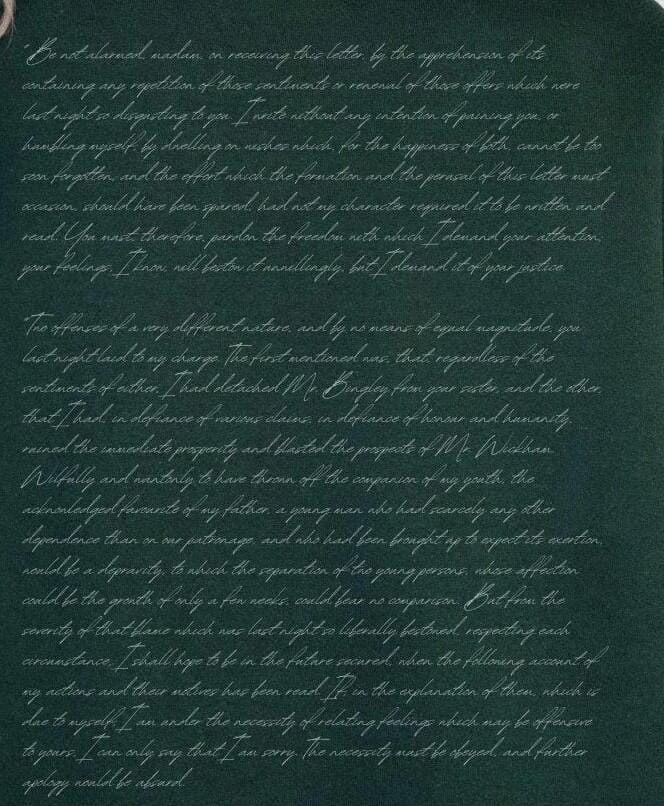 "Be not alarmed, madam, on receiving this letter, by the apprehension of its
containing any repetition of those sentiments or renewal of those offers which were
last night so disgusting to you. I write without any intention of paining you, or
humbling myself, by dwelling on wishes which, for the happiness of both, cannot be too
soon forgotten; and the effort which the formation and the perusal of this letter must
occasion, should have been spared, had not my character required it to be written and
read. You must, therefore, pardon the freedom with which I demand your attention;
your feelings, I know, will bestow it unwillingly, but I demand it of your justice.
"Two offenses of a very different nature, and by no means of equal magnitude, you
last night laid to my charge. The first mentioned was, that, regardless of the
sentiments of either, I had detached Mr. Bingley from your sister, and the other,
that I had, in defiance of various claims, in defiance of honour and humanity,
ruined the immediate prosperity and blasted the prospects of Mr. Wickham.
Wilfully and wantonly to have thrown off the companion of my youth, the
acknowledged favourite of my father, a young man who had scarcely any other
dependence than on our patronage, and who had been brought up to expect its exertion,
would be a depravity, to which the separation of two young persons, whose affection
could be the growth of only a few weeks, could bear no comparison. But from the
severity of that blame which was last night so liberally bestowed, respecting each
circumstance, I shall hope to be in the future secured, when the following account of
my actions and their motives has been read. If, in the explanation of them, which is
due to myself, I am under the necessity of relating feelings which may be offensive
to yours, I can only say that I am sorry. The necessity must be obeyed, and further
apology would be absurd.